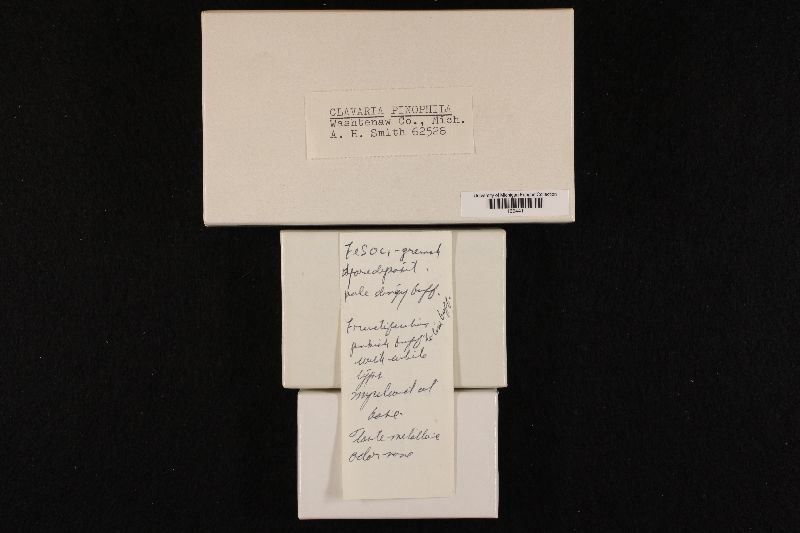 CLAVARIA PINOPHILA
Washtenaw Co., Mich.
A. H. Smith 62528
University of Michigan Fungus Collection
FeSO4 - greenish
Spore deposit
pale dingy buff.
Fructification
pinkish buff to
buff.
with white
tips
mycelium at
base
Taste metallic
odor none